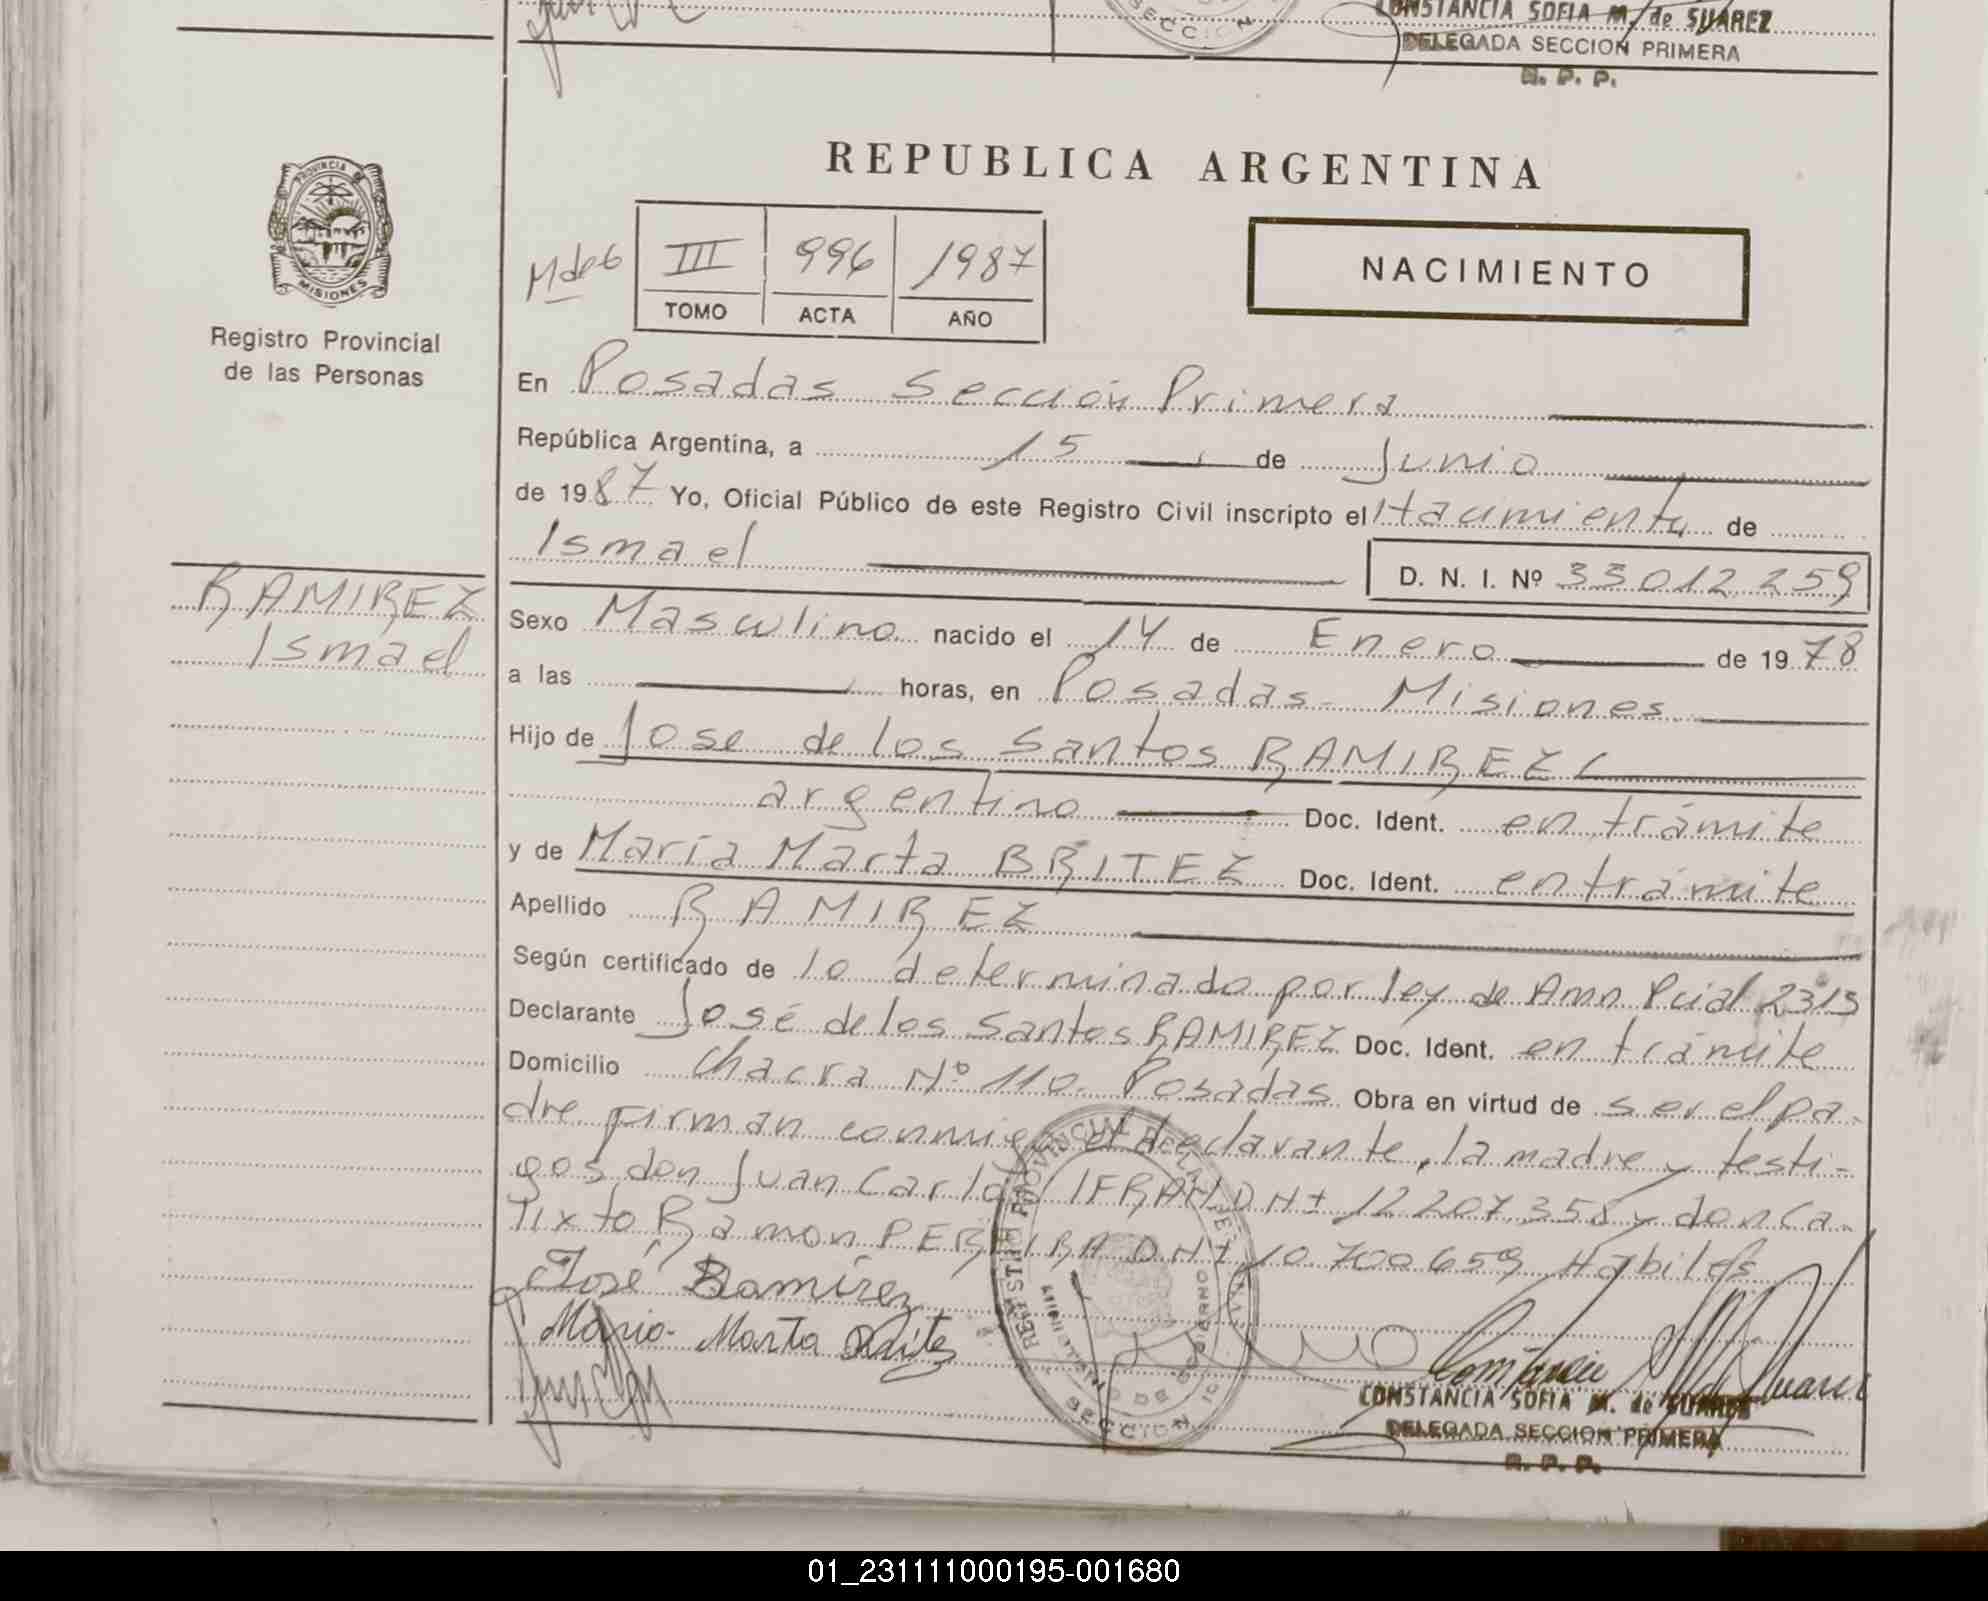 CONSTANCIA SOFIA M. de SUAREZ
DELEGADA SECCION PRIMERA
R. P. P.
SECCION
PROVINCIA DE
MISIONES
Registro Provincial
de las Personas
REPUBLICA ARGENTINA
M de G
III 996 1987
TOMO ACTA AÑO
NACIMIENTO
En Posadas Sección Primera
República Argentina, a 15 de Junio
de 1987 Yo, Oficial Público de este Registro Civil inscripto el Nacimiento de
Ismael
D. N. I. Nº 33012259
RAMIREZ
Ismael
Sexo Masculino nacido el 14 de Enero de 1978
a las horas, en Posadas - Misiones
Hijo de Jose de los Santos RAMIREZ
argentino Doc. Ident. en trámite
y de María Marta BRITEZ Doc. Ident. en trámite
Apellido RAMIREZ
Según certificado de lo determinado por ley de Amn Pcial 2315
Declarante José de los Santos RAMIREZ Doc. Ident. en trámite
Domicilio Chacra Nº 110. Posadas Obra en virtud de ser el pa-
dre firman conmigo el declarante, la madre y testi-
gos don Juan Carlos IFRAN DNI 12.207.358 y don Ca-
lixto Ramon PEREIRA DNI 10.700659 Habiles
José Ramírez
Maria Marta Britez
REGISTRO PROVINCIAL DE LAS PERSONAS
MINISTERIO DE GOBIERNO
SECCION 1º
Constancia M de Suarez
CONSTANCIA SOFIA M. de SUAREZ
DELEGADA SECCION PRIMERA
R. P. P.
01_231111000195-001680